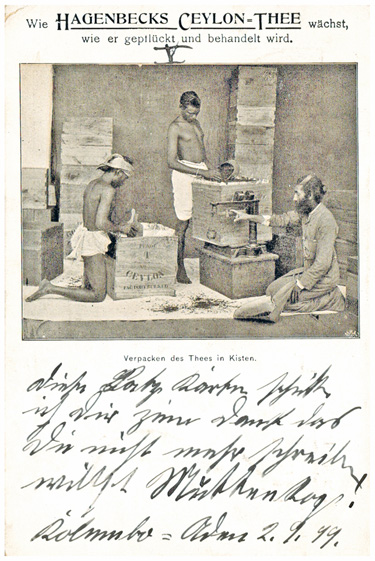 Wie HAGENBECKS CEYLON=THEE wächst,
wie er gepflückt und behandelt wird.
V
CEYLON
Verpacken des Thees in Kisten.
diese Karten schick
ich Dir zum Dank das
Du nicht mehr schreiben
willst
Colombo = Aden 2.9.99.